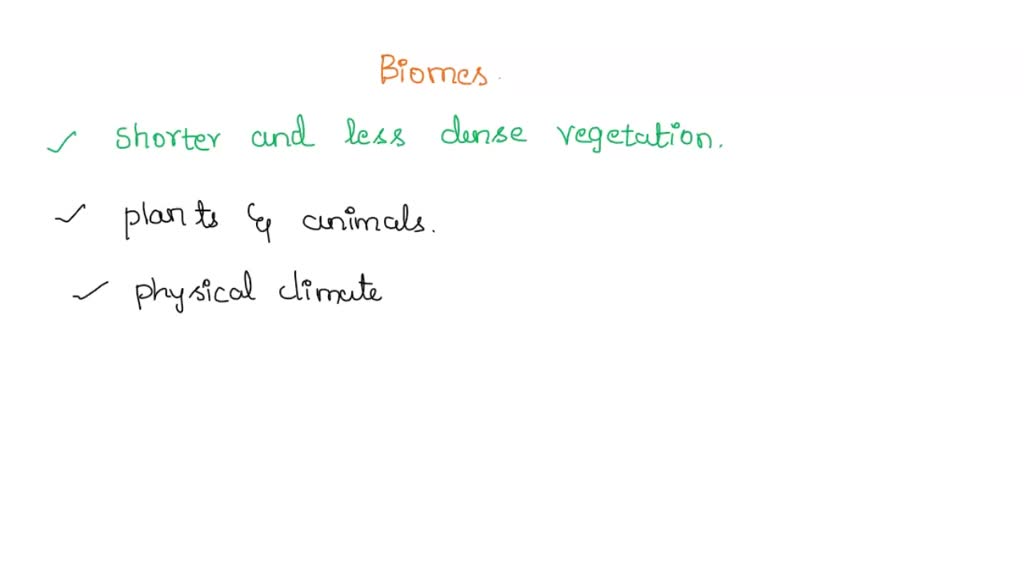 Biomes.
shorter and less dense vegetation.
plants & animals.
physical climate